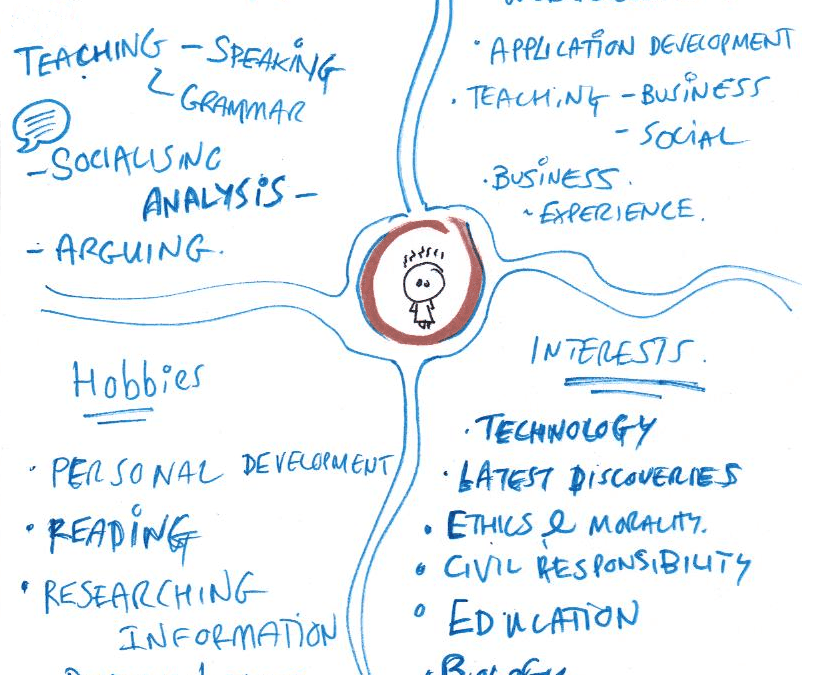 TEACHING - SPEAKING
GRAMMAR
- SOCIALISING
ANALYSIS -
- ARGUING.
· APPLICATION DEVELOPMENT
· TEACHING - BUSINESS
- SOCIAL
· BUSINESS.
~ EXPERIENCE.
Hobbies
· PERSONAL DEVELOPMENT
· READING
· RESEARCHING
INFORMATION
INTERESTS.
· TECHNOLOGY
· LATEST DISCOVERIES
· ETHICS & MORALITY.
· CIVIL RESPONSIBILITY
· EDUCATION
· BIOLOGY